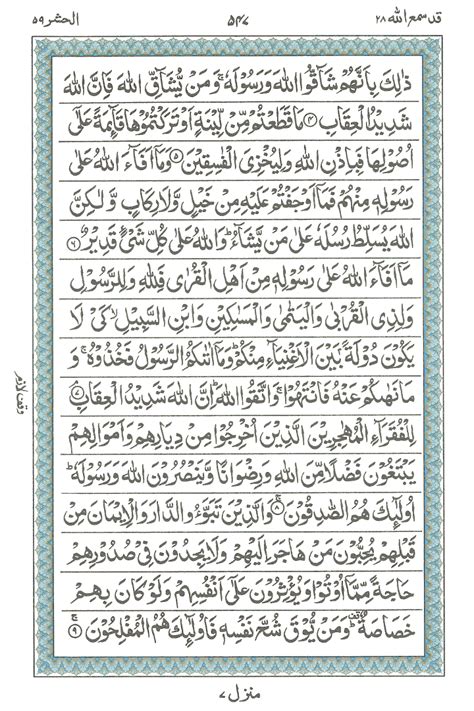 قد سمع الله ٢٨ ٥٤٧ الحشر ٥٩
ذٰلِكَ بِاَنَّهُمْ شَآقُّوا اللّٰهَ وَرَسُوْلَهٗ ۚ وَمَنْ يُّشَآقِّ اللّٰهَ فَاِنَّ اللّٰهَ
شَدِيْدُ الْعِقَابِ ﴿۴﴾ مَا قَطَعْتُمْ مِّنْ لِّيْنَةٍ اَوْ تَرَكْتُمُوْهَا قَآئِمَةً عَلٰٓى
اُصُوْلِهَا فَبِاِذْنِ اللّٰهِ وَلِيُخْزِيَ الْفٰسِقِيْنَ ﴿۵﴾ وَمَآ اَفَآءَ اللّٰهُ عَلٰى
رَسُوْلِهٖ مِنْهُمْ فَمَآ اَوْجَفْتُمْ عَلَيْهِ مِنْ خَيْلٍ وَّلَا رِكَابٍ وَّلٰكِنَّ
اللّٰهَ يُسَلِّطُ رُسُلَهٗ عَلٰى مَنْ يَّشَآءُ ؕ وَاللّٰهُ عَلٰى كُلِّ شَيْءٍ قَدِيْرٌ ﴿۶﴾
مَآ اَفَآءَ اللّٰهُ عَلٰى رَسُوْلِهٖ مِنْ اَهْلِ الْقُرٰى فَلِلّٰهِ وَلِلرَّسُوْلِ
وَلِذِي الْقُرْبٰى وَالْيَتٰمٰى وَالْمَسٰكِيْنِ وَابْنِ السَّبِيْلِ ۙ كَيْ لَا
يَكُوْنَ دُوْلَةًۢ بَيْنَ الْاَغْنِيَآءِ مِنْكُمْ ؕ وَمَآ اٰتٰىكُمُ الرَّسُوْلُ فَخُذُوْهُ ۚ وَ
مَا نَهٰىكُمْ عَنْهُ فَانْتَهُوْا ۚ وَاتَّقُوا اللّٰهَ ؕ اِنَّ اللّٰهَ شَدِيْدُ الْعِقَابِ ﴿۷﴾
وقف لازم
لِلْفُقَرَآءِ الْمُهٰجِرِيْنَ الَّذِيْنَ اُخْرِجُوْا مِنْ دِيَارِهِمْ وَاَمْوَالِهِمْ
يَبْتَغُوْنَ فَضْلًا مِّنَ اللّٰهِ وَرِضْوَانًا وَّيَنْصُرُوْنَ اللّٰهَ وَرَسُوْلَهٗ ؕ
اُولٰٓئِكَ هُمُ الصّٰدِقُوْنَ ﴿۸﴾ وَالَّذِيْنَ تَبَوَّؤُ الدَّارَ وَالْاِيْمَانَ مِنْ
قَبْلِهِمْ يُحِبُّوْنَ مَنْ هَاجَرَ اِلَيْهِمْ وَلَا يَجِدُوْنَ فِيْ صُدُوْرِهِمْ
حَاجَةً مِّمَّآ اُوْتُوْا وَيُؤْثِرُوْنَ عَلٰٓى اَنْفُسِهِمْ وَلَوْ كَانَ بِهِمْ
خَصَاصَةٌ ؕ وَمَنْ يُّوْقَ شُحَّ نَفْسِهٖ فَاُولٰٓئِكَ هُمُ الْمُفْلِحُوْنَ ﴿۹﴾
منزل ٧